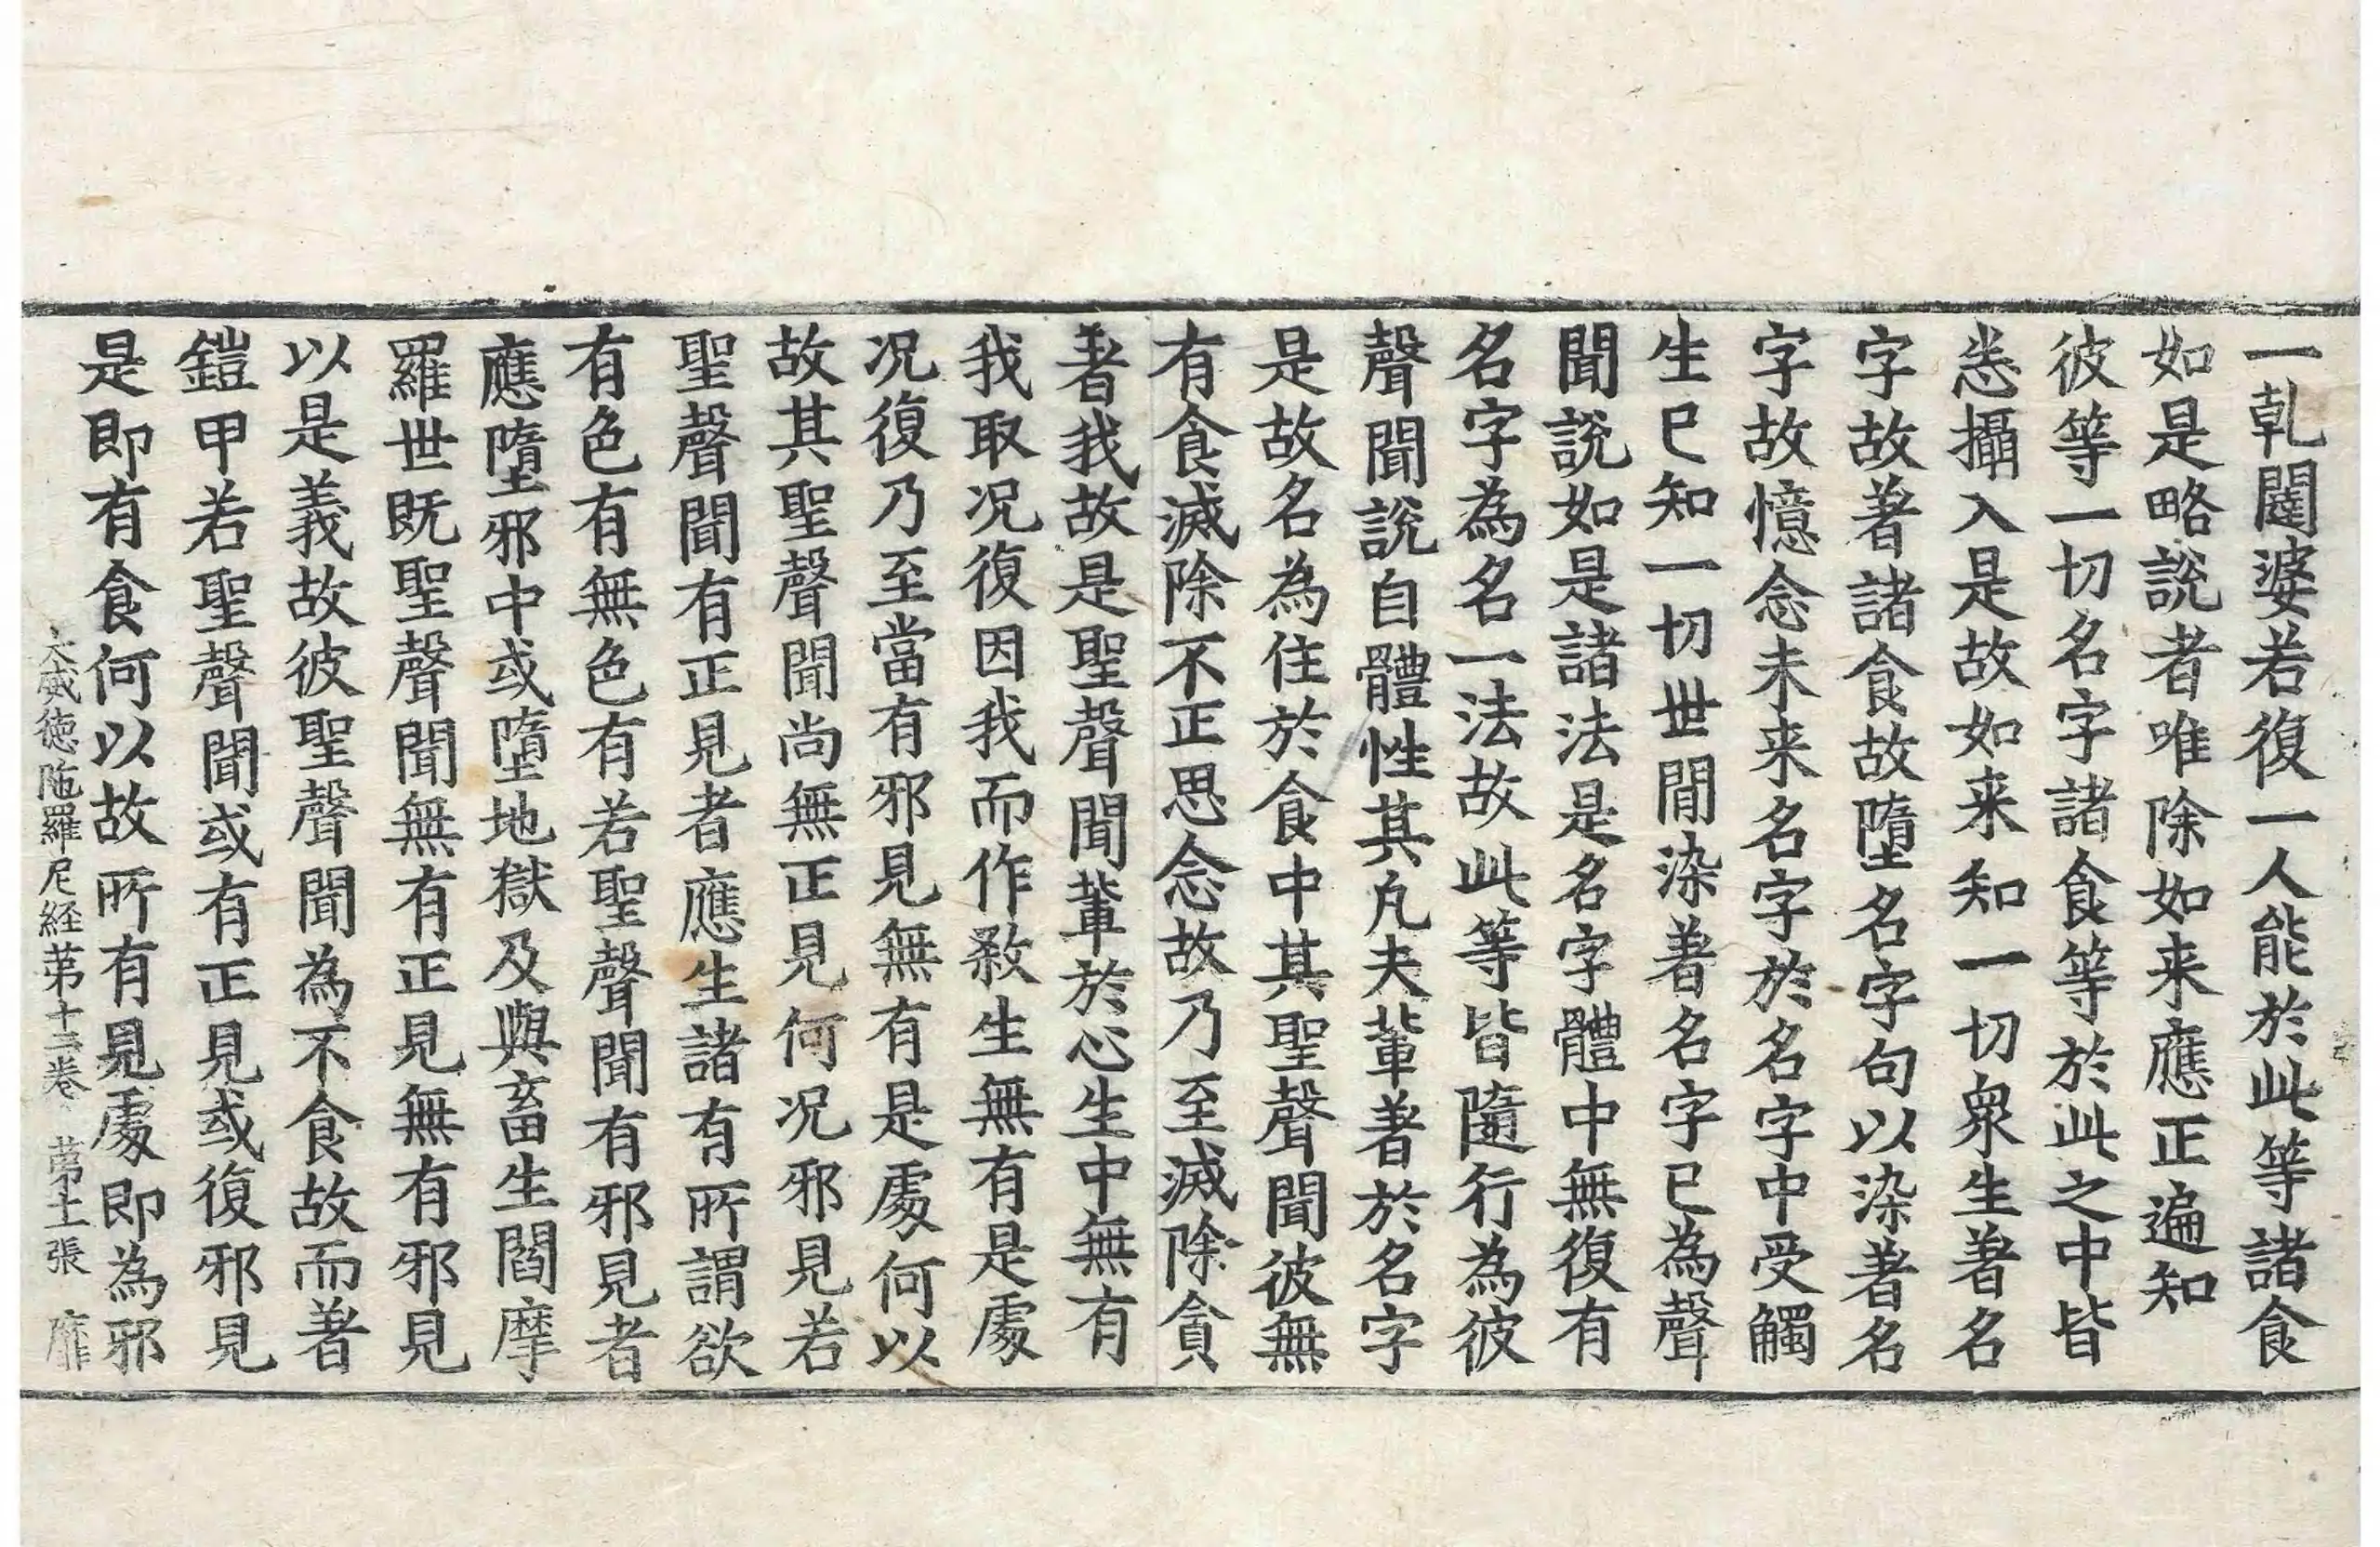 一乹闥婆若復一人能於此等諸食
如是略說者唯除如来應正遍知
彼等一切名字諸食等於此之中皆
悉攝入是故如来知一切衆生著名
字故著諸食故墮名字句以染著名
字故憶念未来名字於名字中受觸
生已知一切世間染著名字已為聲
聞說如是諸法是名字體中無復有
名字為名一法故此等皆隨行為彼
聲聞說自體性其凡夫輩著於名字
是故名為住於食中其聖聲聞彼無
有食滅除不正思念故乃至滅除貪
著我故是聖聲聞輩於心生中無有
我取況復因我而作煞生無有是處
況復乃至當有邪見無有是處何以
故其聖聲聞尚無正見何況邪見若
聖聲聞有正見者應生諸有所謂欲
有色有無色有若聖聲聞有邪見者
應墮邪中或墮地獄及與畜生閻摩
羅世既聖聲聞無有正見無有邪見
以是義故彼聖聲聞為不食故而著
鎧甲若聖聲聞或有正見或復邪見
是即有食何以故所有見處即為邪
大威徳陁羅尼経苐十三卷 苐十一張 靡